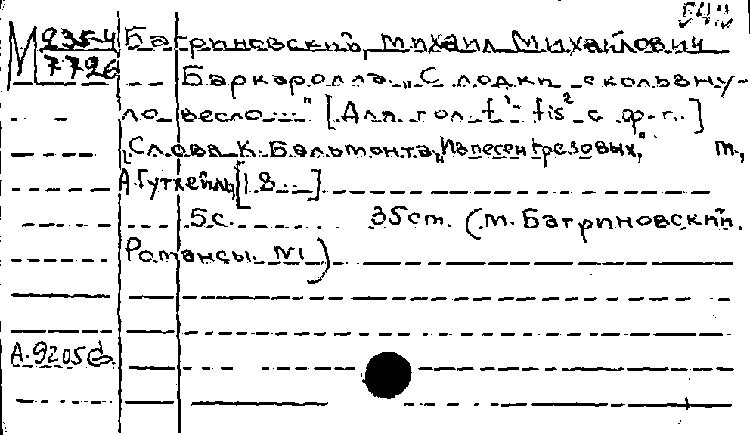 М 235-4
7726
Багриновский, Михаил Михайлович
Баркаролла. „С лодки скользну-
ло весло..." [Для гол. f'-fis² с ф.-п.]
Слова К. Бальмонта „Из песен грезовых", м.,
А. Гутхейль, [18...]
5 с. 35 cm. (М. Багриновский.
Романсы. №1)
А. 9205